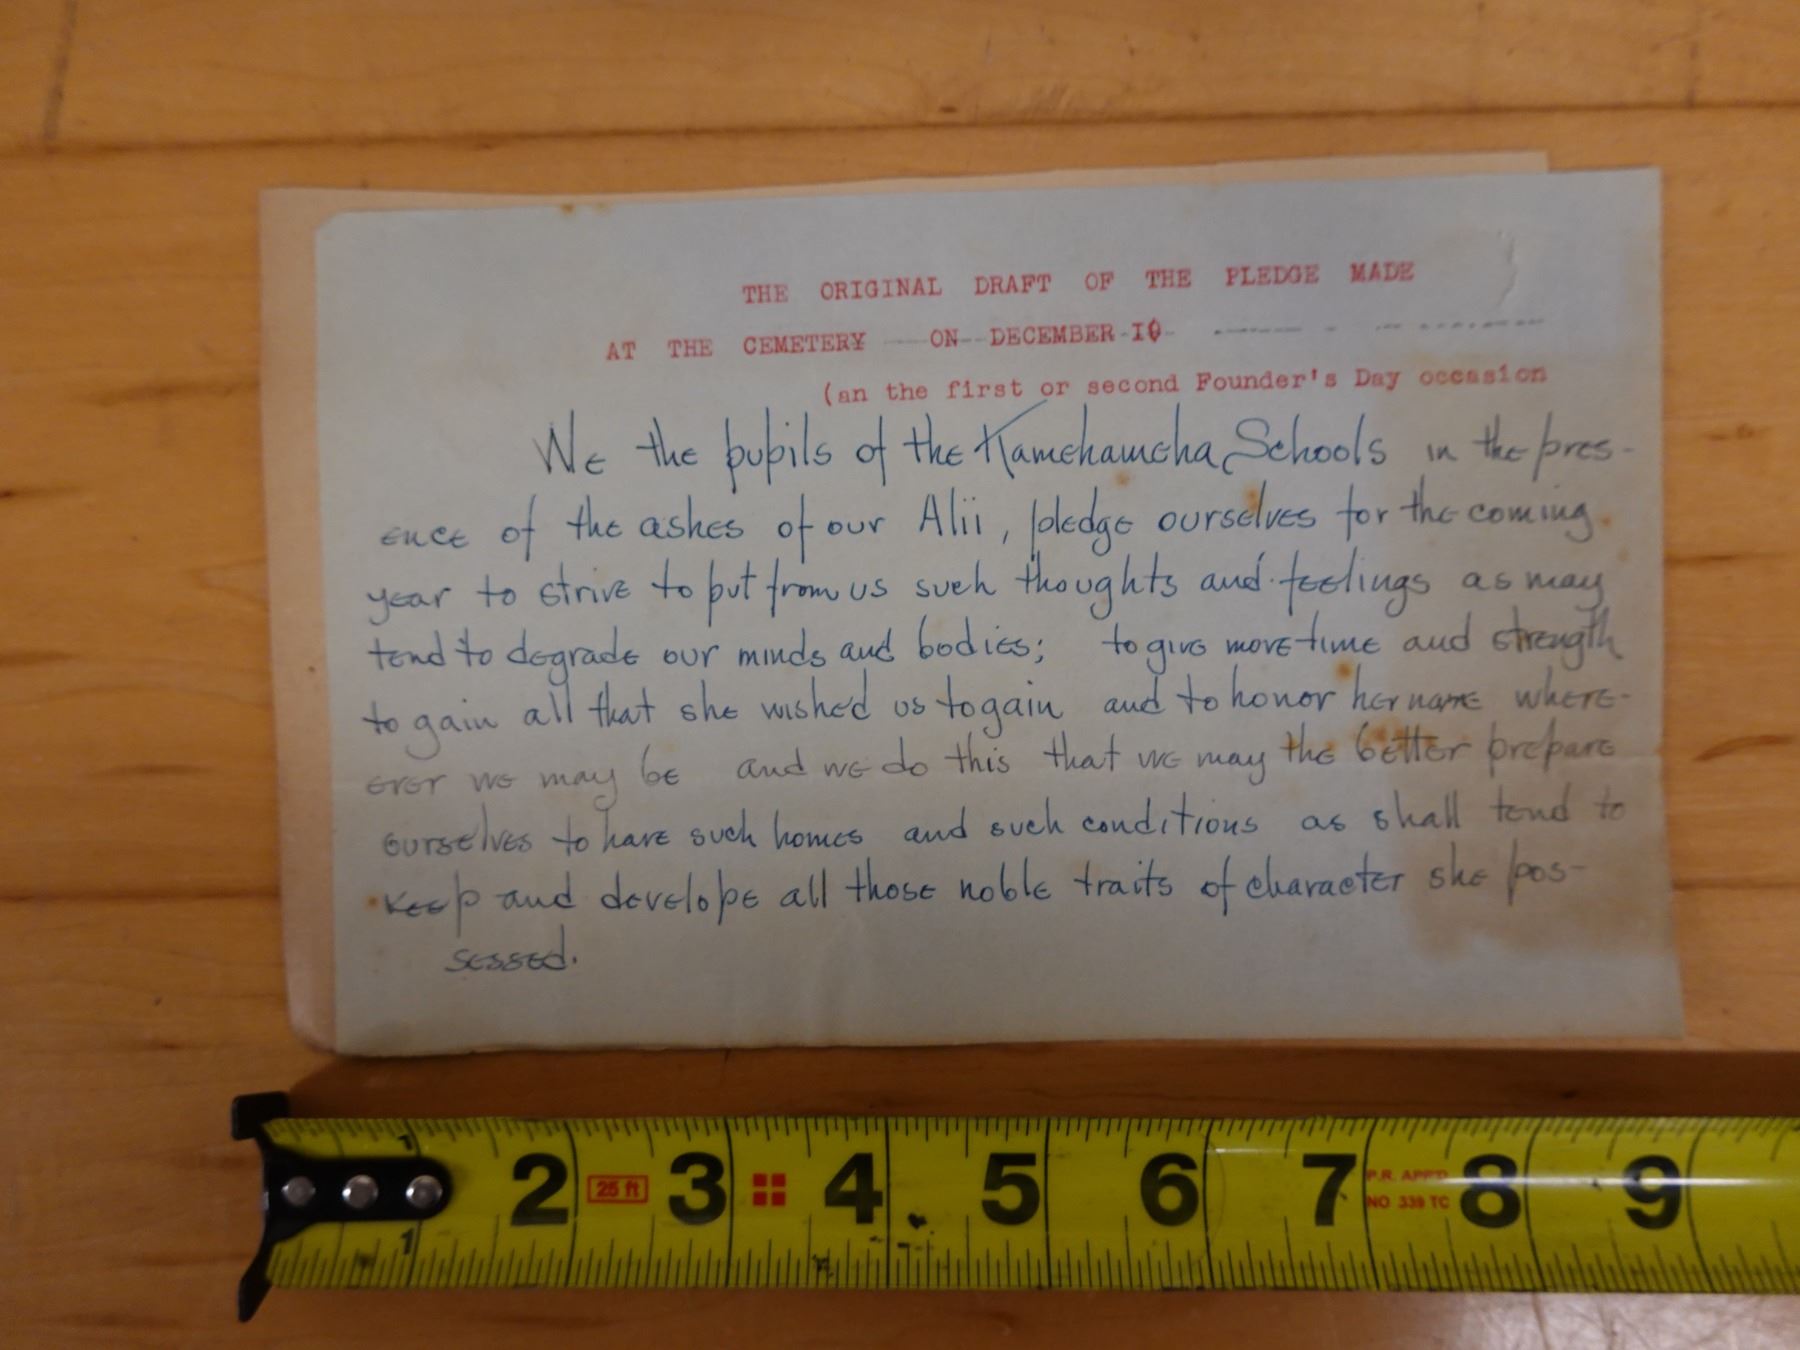 THE ORIGINAL DRAFT OF THE PLEDGE MADE
AT THE CEMETERY ---ON--DECEMBER-10-
(an the first or second Founder's Day occasion
We the pupils of the Kamehameha Schools in the pres-
ence of the ashes of our Alii, pledge ourselves for the coming
year to strive to put from us such thoughts and feelings as may
tend to degrade our minds and bodies; to give more time and strength
to gain all that she wished us to gain and to honor her name where-
ever we may be and we do this that we may the better prepare
ourselves to have such homes and such conditions as shall tend to
keep and develope all those noble traits of character she pos-
sessed.
1 2 25 ft 3 4 5 6 7 P.R. APP'D 8 9
NO 339 TC
1